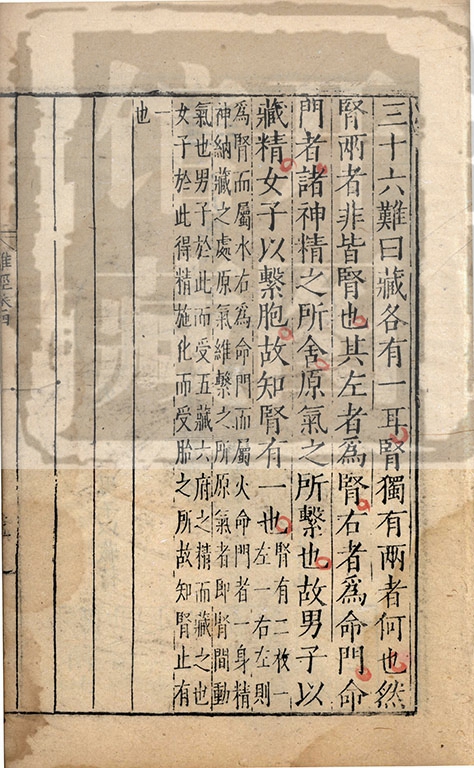 三十六難曰藏各有一耳腎獨有兩者何也然
腎兩者非皆腎也其左者爲腎右者爲命門命
門者諸神精之所舍原氣之所繫也故男子以
藏精女子以繫胞故知腎有一也腎有二枚一
左一右左則
爲腎而屬水右爲命門而屬火命門者一身精
神納藏之處原氣維繫之所原氣者即腎間動
氣也男子於此而受五藏六府之精而藏之也
女子於此得精施化而受胎之所故知腎止有
一也